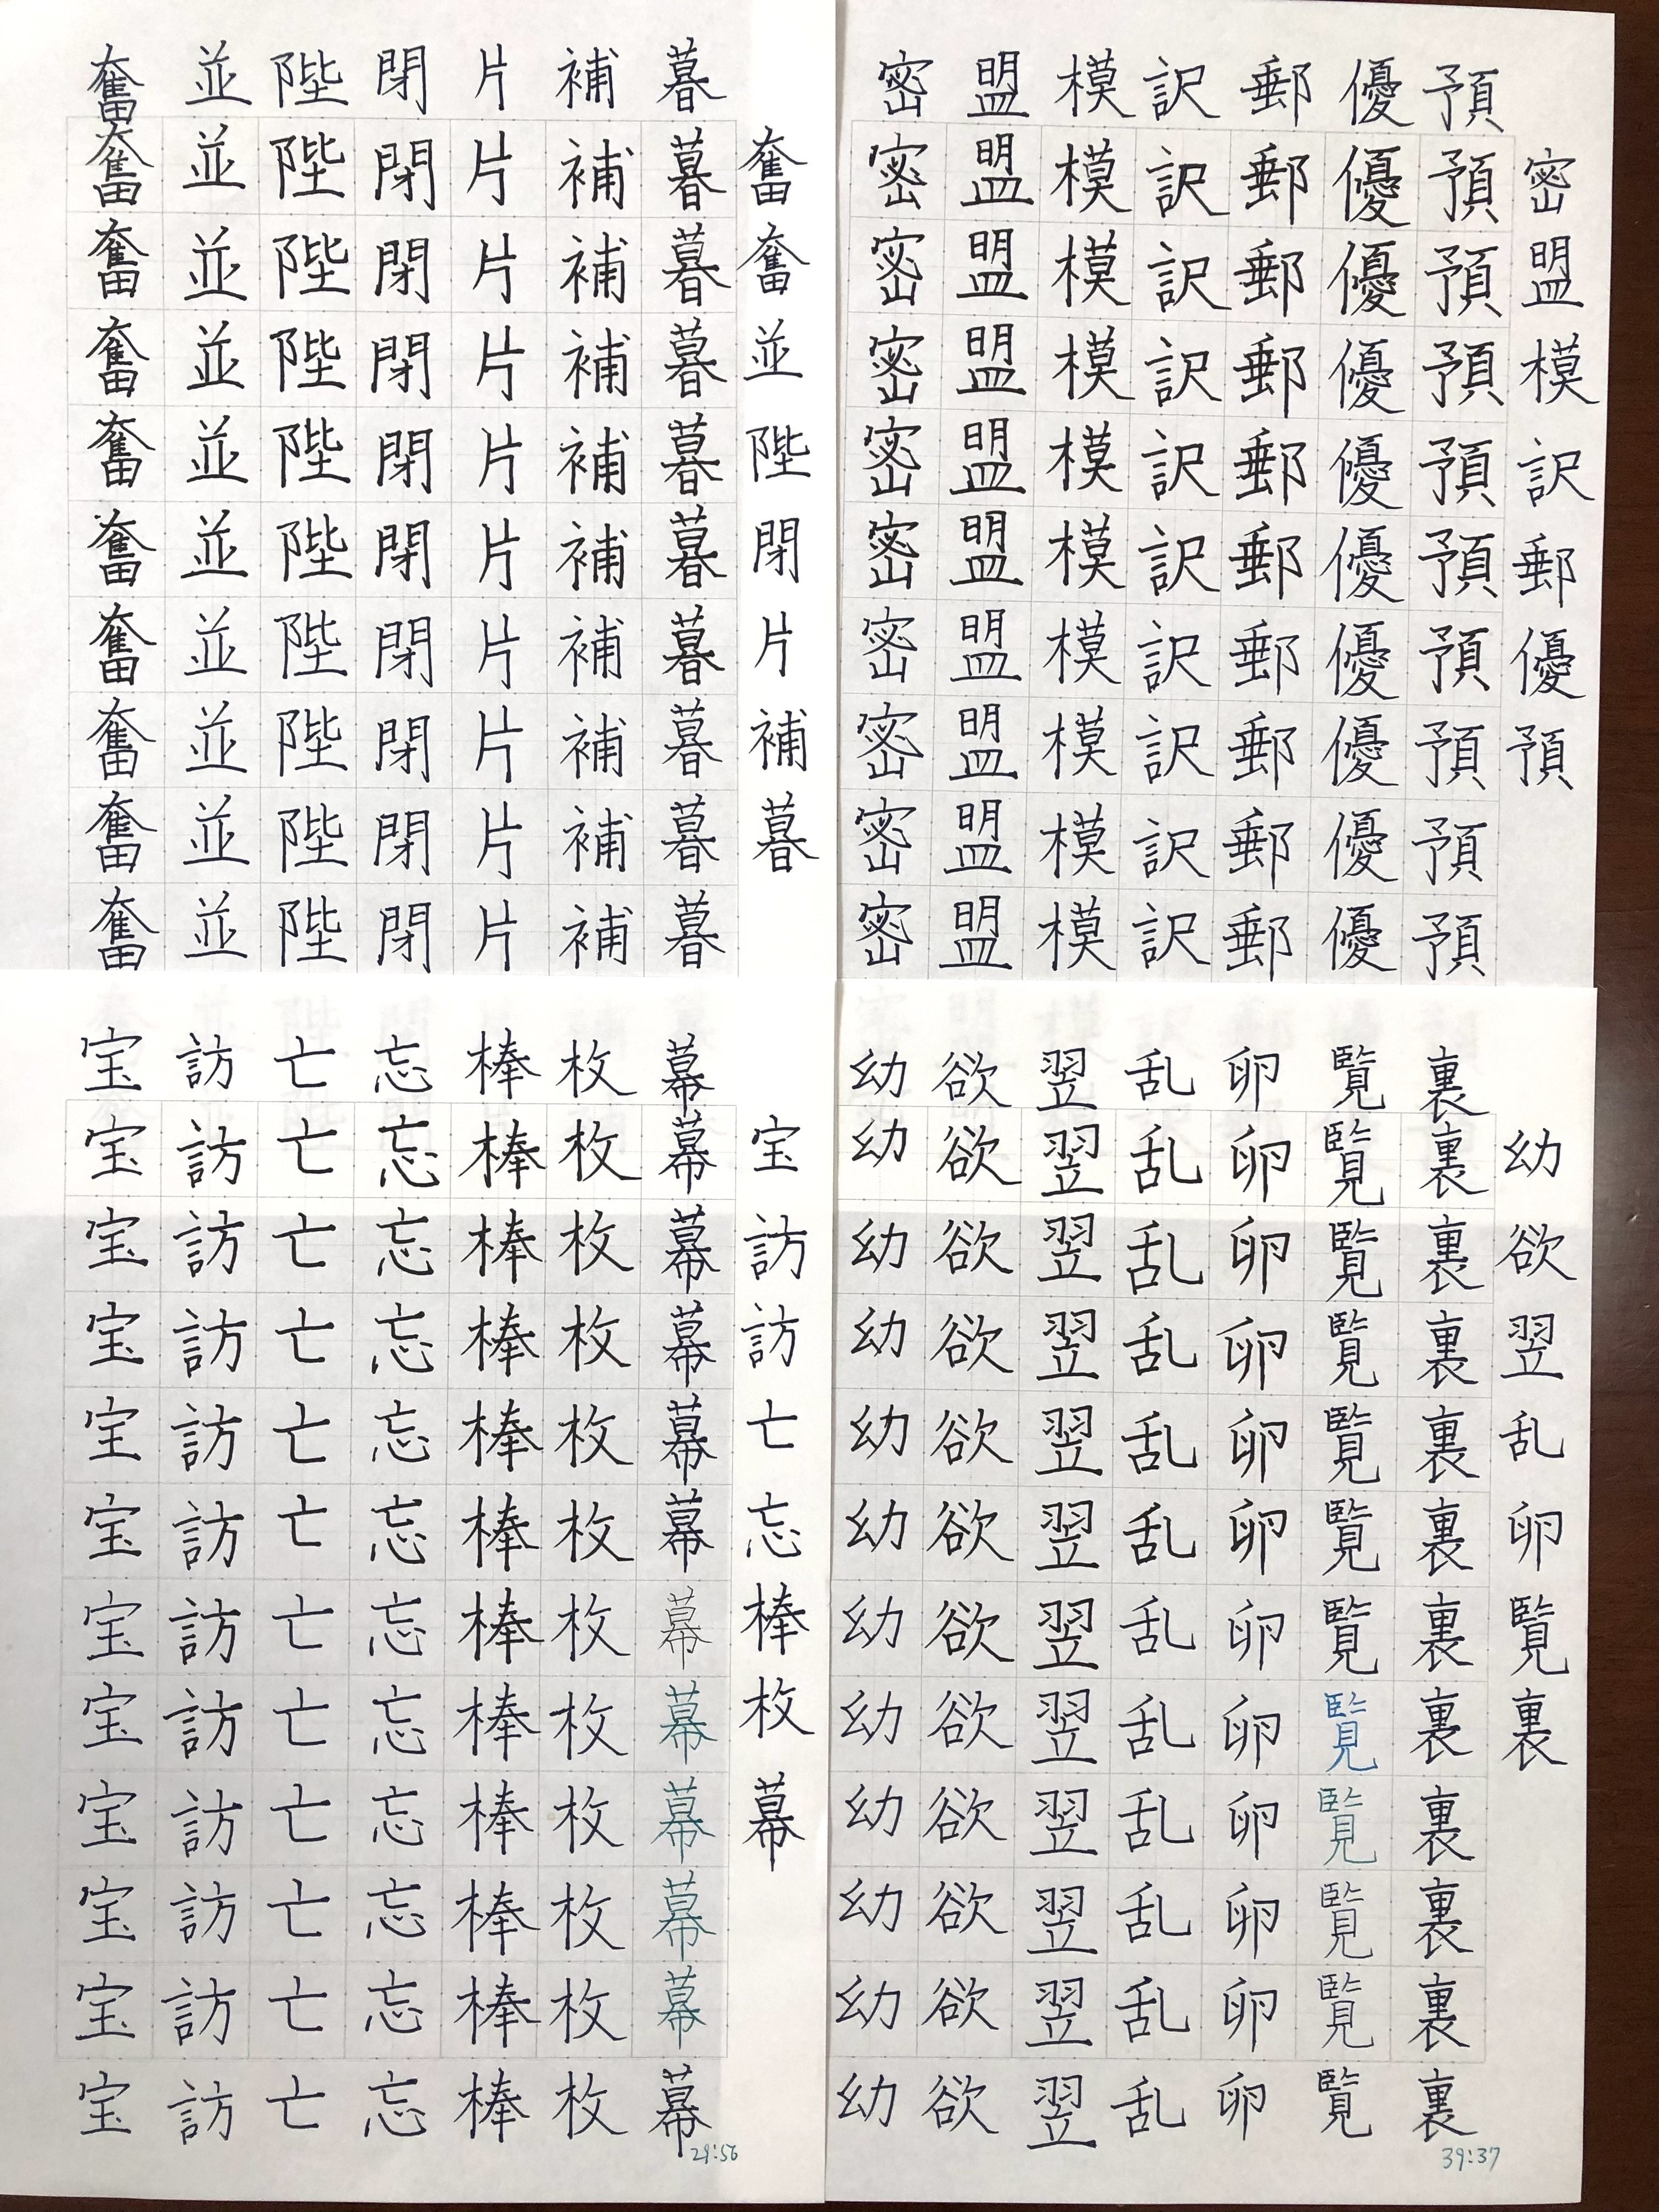 奮 並 陛 閉 片 補 暮
奮 並 陛 閉 片 補 暮 奮
奮 並 陛 閉 片 補 暮 奮
奮 並 陛 閉 片 補 暮 並
奮 並 陛 閉 片 補 暮 陛
奮 並 陛 閉 片 補 暮 閉
奮 並 陛 閉 片 補 暮 片
奮 並 陛 閉 片 補 暮 補
奮 並 陛 閉 片 補 暮 暮
奮 並 陛 閉 片 補 暮
密 盟 模 訳 郵 優 預
密 盟 模 訳 郵 優 預 密
密 盟 模 訳 郵 優 預 盟
密 盟 模 訳 郵 優 預 模
密 盟 模 訳 郵 優 預 訳
密 盟 模 訳 郵 優 預 郵
密 盟 模 訳 郵 優 預 優
密 盟 模 訳 郵 優 預 預
密 盟 模 訳 郵 優 預
密 盟 模 訳 郵 優 預
宝 訪 亡 忘 棒 枚 幕
宝 訪 亡 忘 棒 枚 幕 宝
宝 訪 亡 忘 棒 枚 幕 訪
宝 訪 亡 忘 棒 枚 幕 訪
宝 訪 亡 忘 棒 枚 幕 亡
宝 訪 亡 忘 棒 枚 幕 忘
宝 訪 亡 忘 棒 枚 幕 棒
宝 訪 亡 忘 棒 枚 幕 枚
宝 訪 亡 忘 棒 枚 幕 幕
宝 訪 亡 忘 棒 枚 幕
宝 訪 亡 忘 棒 枚 幕
宝 訪 亡 忘 棒 枚 幕
29:56
幼 欲 翌 乱 卵 覧 裏
幼 欲 翌 乱 卵 覧 裏 幼
幼 欲 翌 乱 卵 覧 裏 欲
幼 欲 翌 乱 卵 覧 裏 翌
幼 欲 翌 乱 卵 覧 裏 乱
幼 欲 翌 乱 卵 覧 裏 卵
幼 欲 翌 乱 卵 覧 裏 覧
幼 欲 翌 乱 卵 覧 裏 裏
幼 欲 翌 乱 卵 覧 裏
幼 欲 翌 乱 卵 覧 裏
幼 欲 翌 乱 卵 覧 裏
幼 欲 翌 乱 卵 覧 裏
39:37